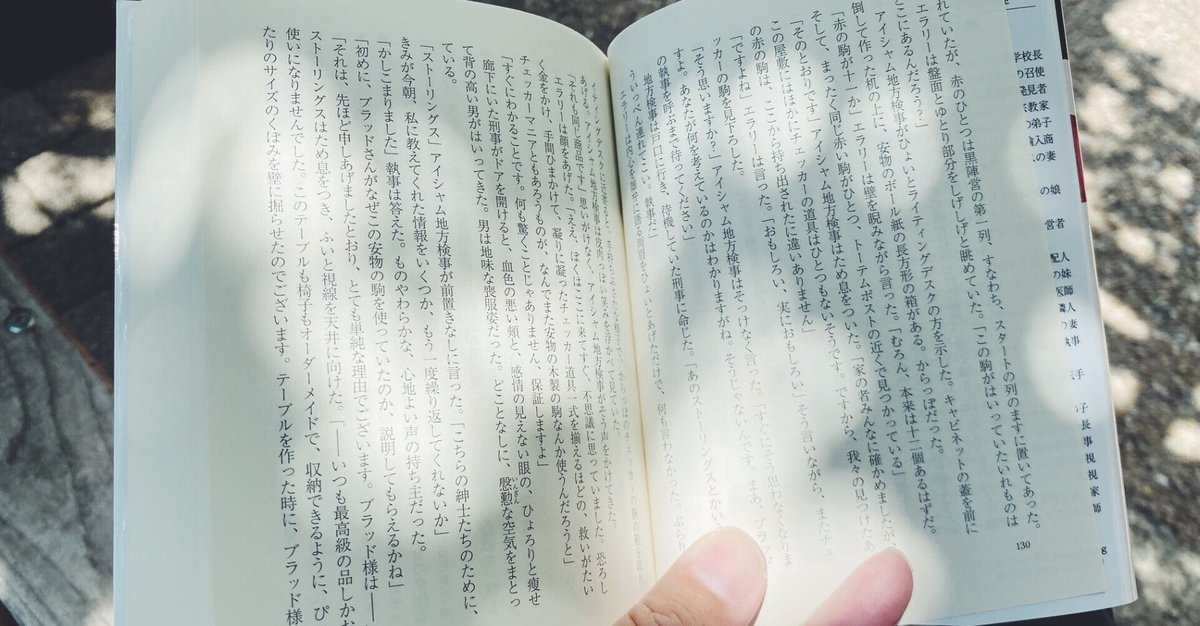 れていたが、赤のひとつは黒陣営の第一列、すなわち、スタートの列のますに置いてあった。
エラリーは盤面とゆとり部分をしげしげと眺めていた。「この駒がはいっていたいれものは
どこにあるんだろう？」
アイシャム地方検事がひょいとライティングデスクの方を示した。キャビネットの蓋を前に
倒して作った机の上に、安物のボール紙の長方形の箱がある。からっぽだった。
「赤の駒が十一か」エラリーは壁を睨みながら言った。「むろん、本来は十二個あるはずだ。
そして、まったく同じ赤い駒がひとつ、トーテムポストの近くで見つかっている」
「そのとおりです」アイシャム地方検事はため息をついた。「家の者みんなに確かめましたが、
この屋敷にはほかにチェッカーの道具はひとつもないそうです。ですから、我々の見つけたあ
の赤の駒は、ここから持ち出されたに違いありません」
「ですよね」エラリーは言った。「おもしろい、実におもしろい」そう言いながら、またチェ
ッカーの駒を見下ろした。
「そう思いますか？」アイシャム地方検事はそっけなく言った。「すぐにそう思わなくなりま
すよ。あなたが何を考えているのかはわかりますがね。そうじゃないんです。まあ、ブラッ
の執事を呼ぶまで待ってください」
地方検事は戸口に行き、待機していた刑事に命じた。「あのストーリングスとかい
ういっぺん連れてこい。執事だ」
エラリーは
両眉をひょいとあげただけで、何も言わなかった。ぶらり
130
アイシャム地方検事は皮肉っぽい笑みを浮かべて見ていた。
「それと同じ商品です」思いがけなく、アイシャム地方検事がそう声をかけてきた。
エラリーは顔をあげた。「ええ、ぼくはここに来てすぐ、不思議に思っていました。恐ろし
く金をかけ、手間ひまかけて、凝りに凝ったチェッカー道具一式を揃えるほどの、救いがたい
チェッカーマニアともあろうものが、なんでまた安物の木製の駒なんか使うんだろうと」
「すぐにわかることです。何も驚くことじゃありません、保証しますよ」
廊下にいた刑事がドアを開けると、血色の悪い頰と、感情の見えない眼の、ひょろりと瘦せ
て背の高い男がはいってきた。男は地味な喪服姿だった。どことなしに、慇懃な空気をまとっ
ている。
「ストーリングス」アイシャム地方検事が前置きなしに言った。「こちらの紳士たちのために、
きみが今朝、私に教えてくれた情報をいくつか、もう一度繰り返してくれないか」
「かしこまりました」執事は答えた。ものやわらかな、心地よい声の持ち主だった。
「初めに、ブラッドさんがなぜこの安物の駒を使っていたのか、説明してもらえるかね」
「それは、先ほど申しあげましたとおり、とても単純な理由でございます。ブラッド様は——
ストーリングスはため息をつき、ふいと視線を天井に向けた。「——いつも最高級の品しかお
使いになりませんでした。このテーブルも椅子もオーダーメイドで、収納できるように、ぴ
たりのサイズのくぼみを壁に掘らせたのでございます。テーブルを作った時に、ブラッド様